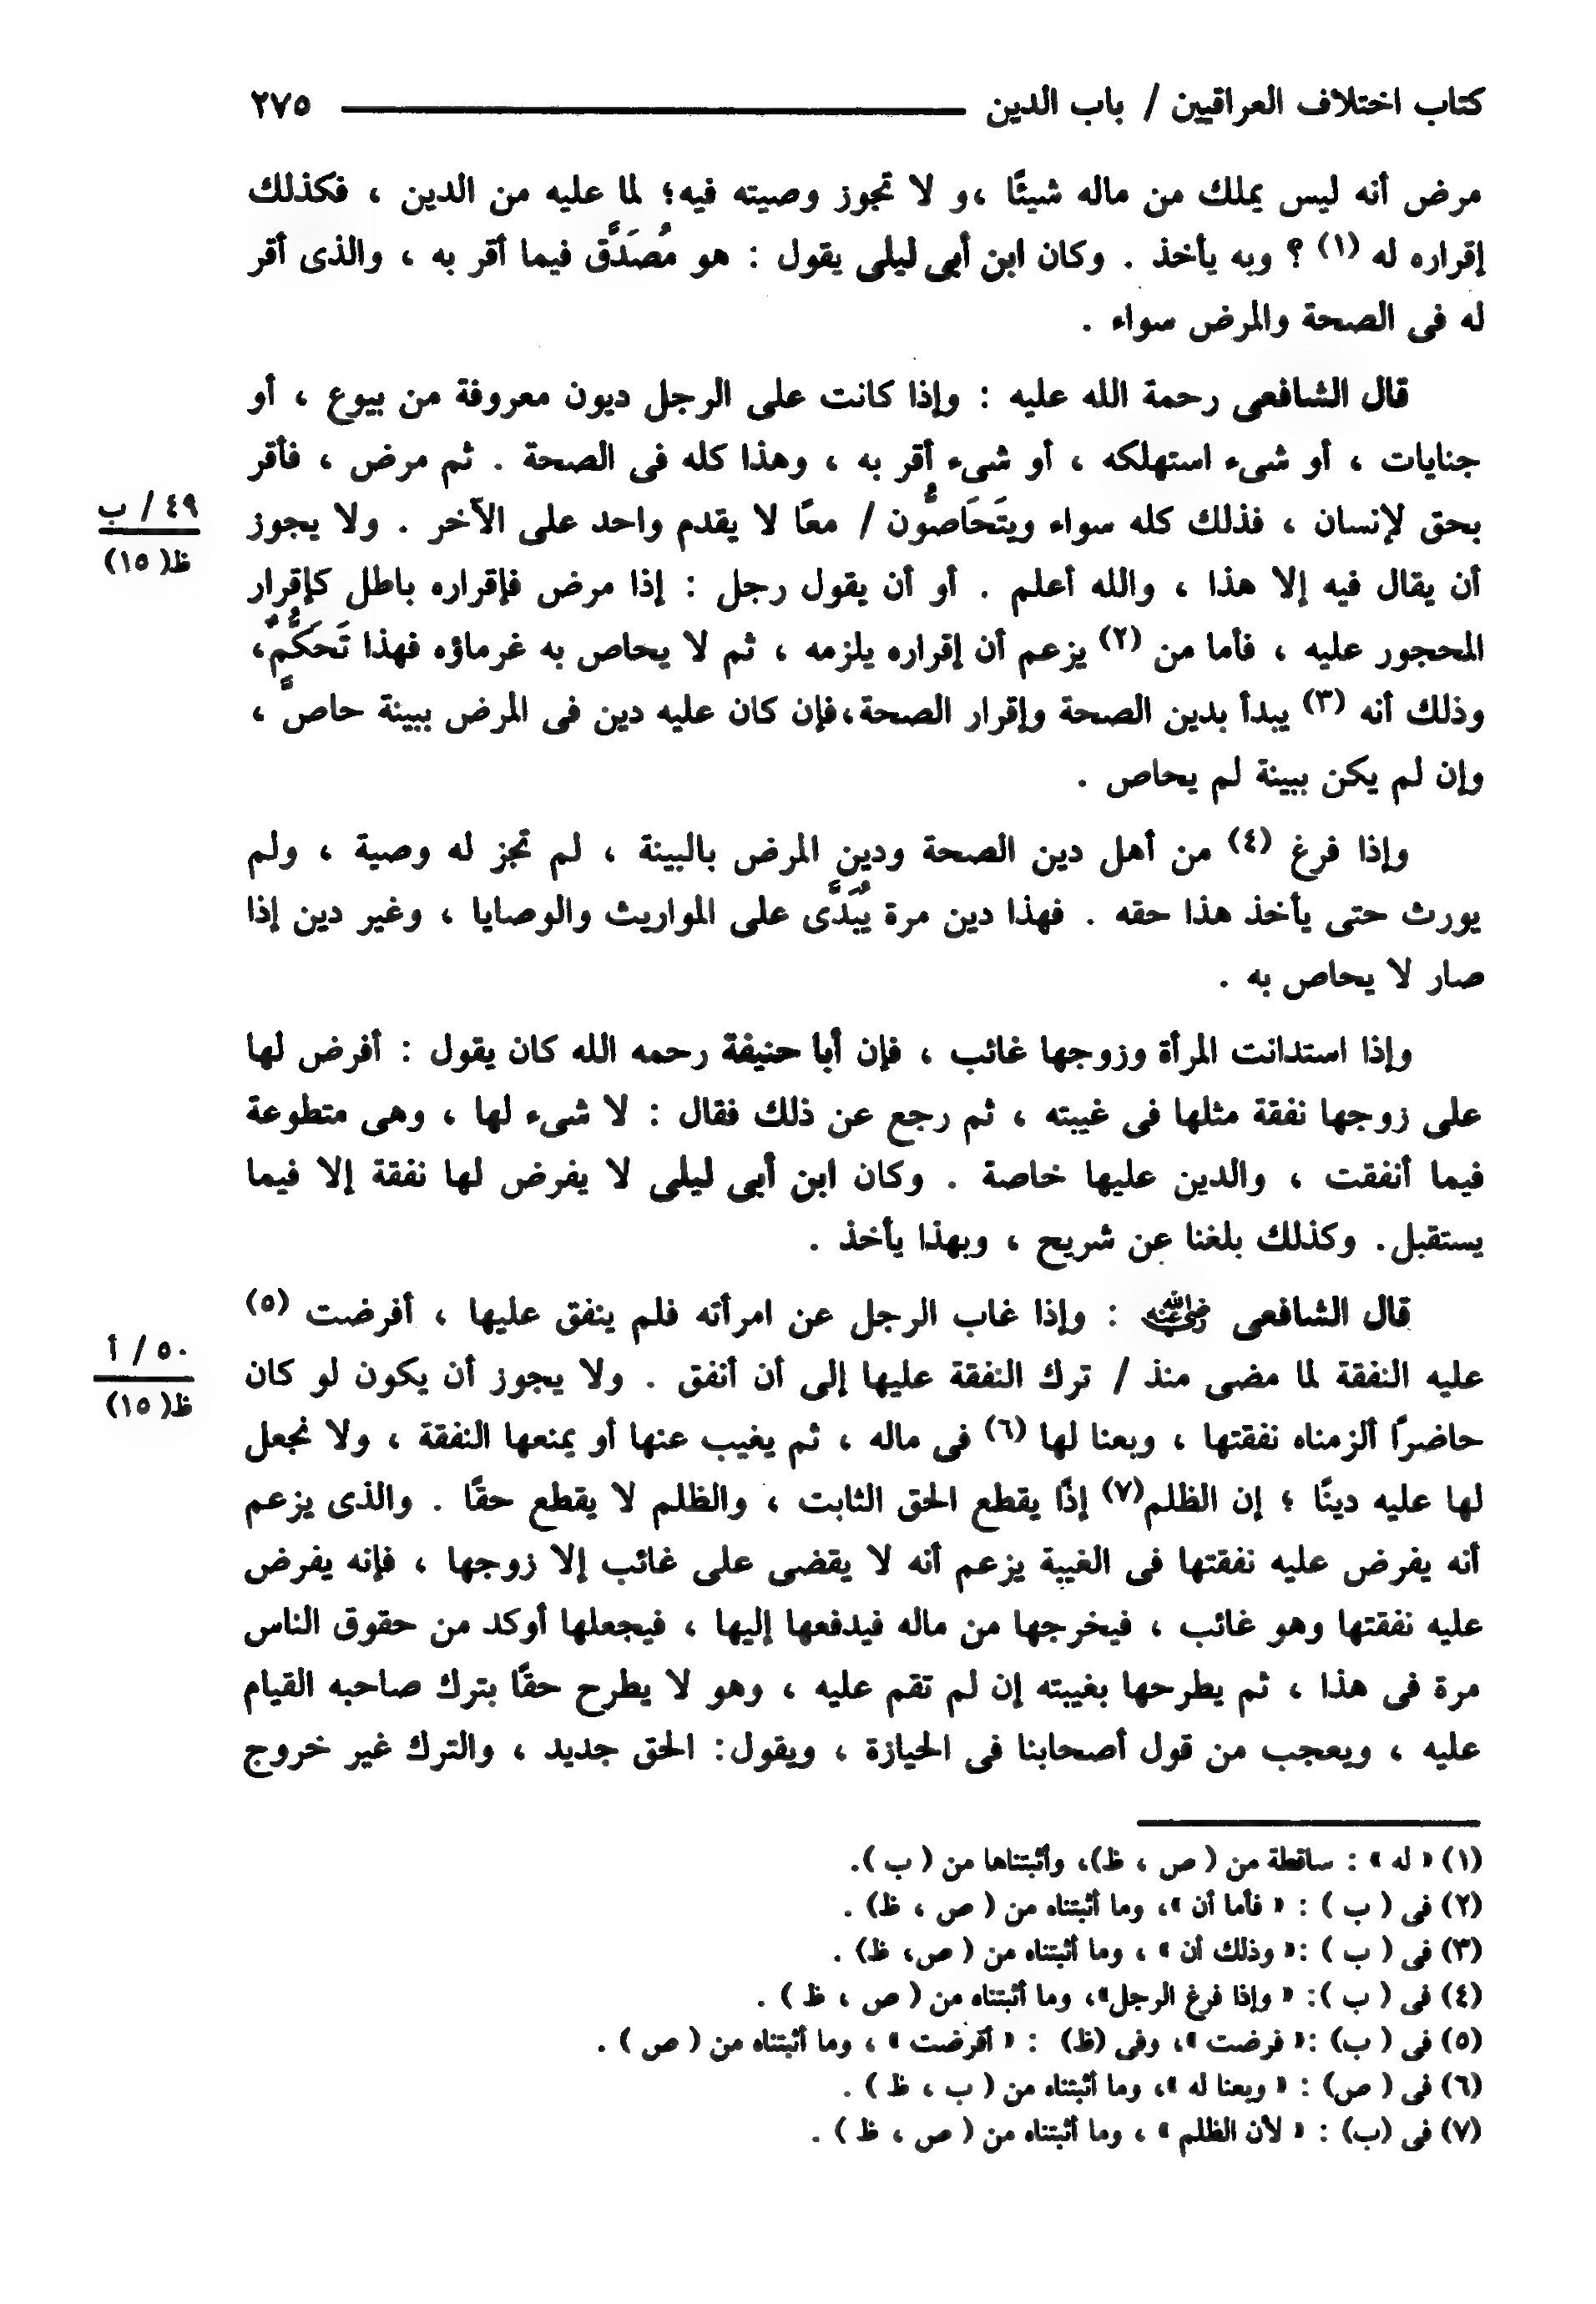 كتاب اختلاف العراقيين / باب الدين ٢٧٥
مرض أنه ليس يملك من ماله شيئًا ،و لا تجوز وصيته فيه؛ لما عليه من الدين ، فكذلك
إقراره له (١) ؟ وبه يأخذ . وكان ابن أبى ليلى يقول : هو مُصَدَّق فيما أقر به ، والذى أقر
له فى الصحة والمرض سواء .
قال الشافعى رحمة الله عليه : وإذا كانت على الرجل ديون معروفة من بيوع ، أو
جنايات ، أو شىء استهلكه ، أو شىء أقر به ، وهذا كله فى الصحة . ثم مرض ، فأقر
بحق لإنسان ، فذلك كله سواء ويتَحَاصُّون / معًا لا يقدم واحد على الآخر . ولا يجوز
٤٩ / ب
ظ( ١٥)
أن يقال فيه إلا هذا ، والله أعلم . أو أن يقول رجل : إذا مرض فإقراره باطل كإقرار
المحجور عليه ، فأما من (٢) يزعم أن إقراره يلزمه ، ثم لا يحاص به غرماؤه فهذا تَحَكُّمٌ،
وذلك أنه (٣) يبدأ بدين الصحة وإقرار الصحة،فإن كان عليه دين فى المرض ببينة حاصَّ ،
وإن لم يكن ببينة لم يحاص .
وإذا فرغ (٤) من أهل دين الصحة ودين المرض بالبينة ، لم تجز له وصية ، ولم
يورث حتى يأخذ هذا حقه . فهذا دين مرة يُبَدَّى على المواريث والوصايا ، وغير دين إذا
صار لا يحاص به .
وإذا استدانت المرأة وزوجها غائب ، فإن أبا حنيفة رحمه الله كان يقول : أفرض لها
على زوجها نفقة مثلها فى غيبته ، ثم رجع عن ذلك فقال : لا شىء لها ، وهى متطوعة
فيما أنفقت ، والدين عليها خاصة . وكان ابن أبى ليلى لا يفرض لها نفقة إلا فيما
يستقبل. وكذلك بلغنا عن شريح ، وبهذا يأخذ .
قال الشافعى رضي الله عنه : وإذا غاب الرجل عن امرأته فلم ينفق عليها ، أفرضت (٥)
عليه النفقة لما مضى منذ / ترك النفقة عليها إلى أن أنفق . ولا يجوز أن يكون لو كان
٥٠ / أ
ظ( ١٥)
حاضرًا ألزمناه نفقتها ، وبعنا لها (٦) فى ماله ، ثم يغيب عنها أو يمنعها النفقة ، ولا نجعل
لها عليه دينًا ؛ إن الظلم(٧) إذًا يقطع الحق الثابت ، والظلم لا يقطع حقًا . والذى يزعم
أنه يفرض عليه نفقتها فى الغيبة يزعم أنه لا يقضى على غائب إلا زوجها ، فإنه يفرض
عليه نفقتها وهو غائب ، فيخرجها من ماله فيدفعها إليها ، فيجعلها أوكد من حقوق الناس
مرة فى هذا ، ثم يطرحها بغيبته إن لم تقم عليه ، وهو لا يطرح حقًا بترك صاحبه القيام
عليه ، ويعجب من قول أصحابنا فى الحيازة ، ويقول: الحق جديد ، والترك غير خروج
(١) « له » : ساقطة من ( ص ، ظ)، وأثبتناها من ( ب ).
(٢) فى ( ب ) : « فأما أن »، وما أثبتناه من ( ص ، ظ) .
(٣) فى ( ب ) :« وذلك أن » ، وما أثبتناه من ( ص، ظ) .
(٤) فى ( ب ): « وإذا فرغ الرجل»، وما أثبتناه من ( ص ، ظ ) .
(٥) فى ( ب) :« فرضت »، وفى (ظ) : « أقرضت » ، وما أثبتناه من ( ص ) .
(٦) فى ( ص) : « وبعنا له »، وما أثبتناه من ( ب ، ظ ) .
(٧) فى (ب) : « لأن الظلم » ، وما أثبتناه من ( ص ، ظ ) .